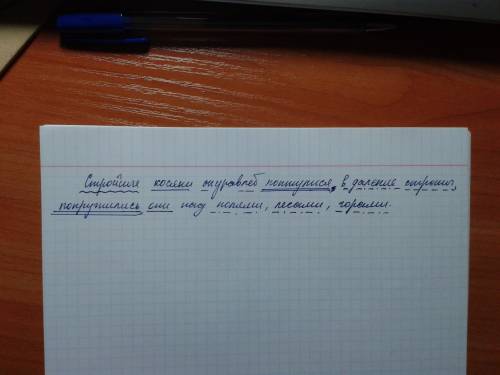 Стройные косяки журавлей потянулися, в далекие страны,
покружились они над полями, лесами, горами.